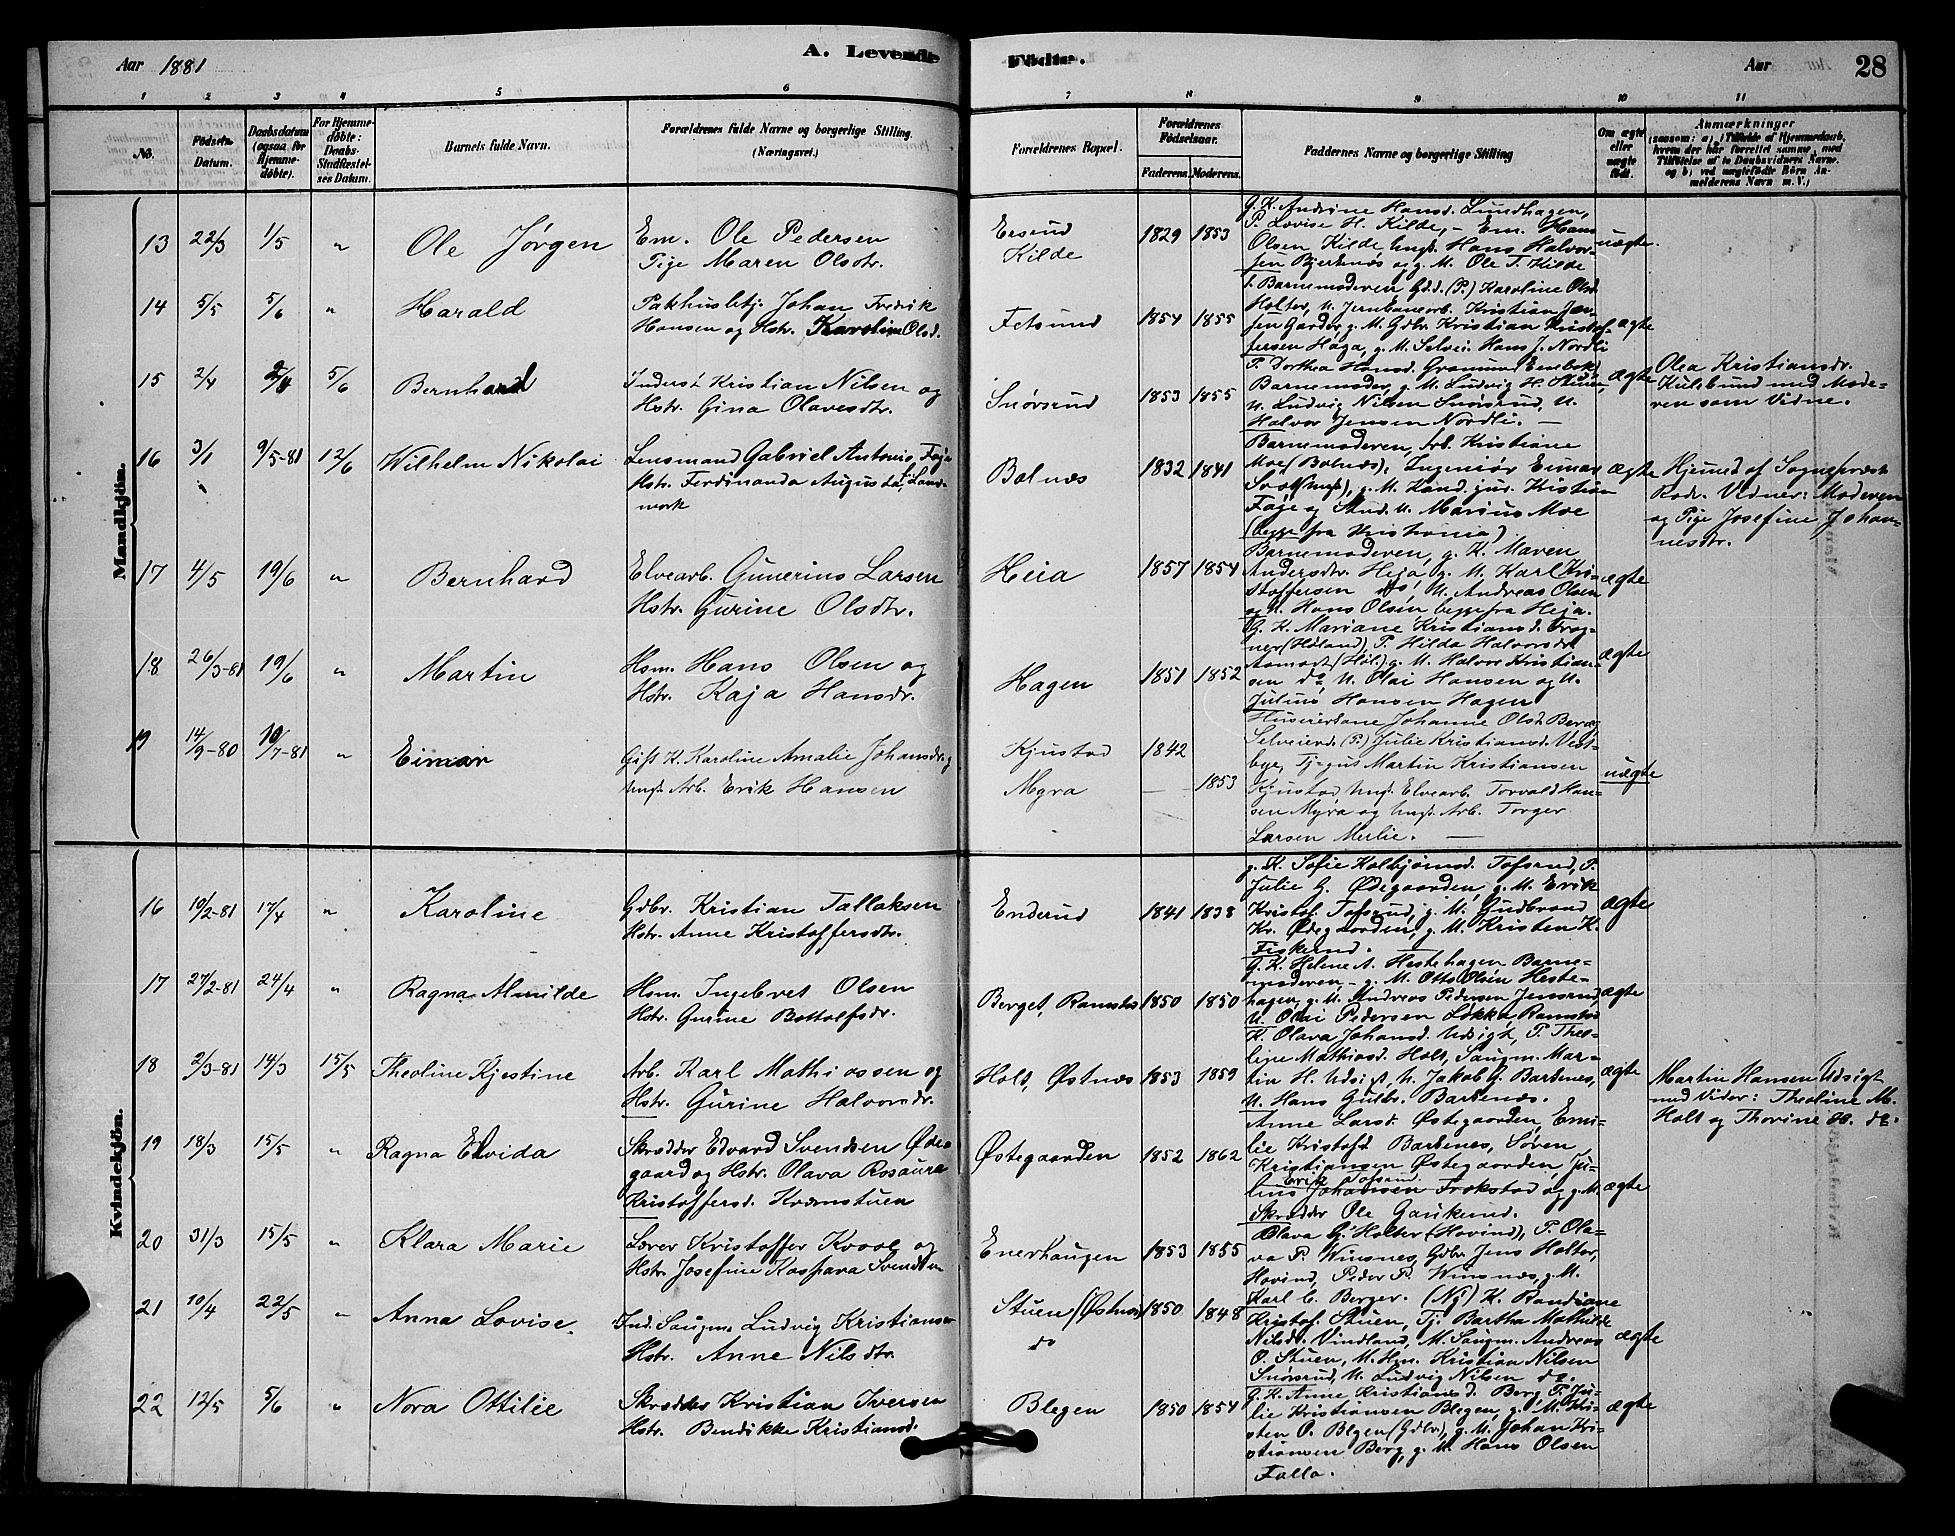 Aar 1881
A. Levende
Fødte.
Aar
28
1 2 3 4 5 6 7 8 9 10 11
No.
Fødsels-
Datum.
Daabsdatum
(ogsaa for
Hjemme-
døbte).
For Hjemme-
døbte:
Daabs-
Stadfæstel-
ses Datum.
Barnets fulde Navn.
Forældrenes fulde Navne og borgerlige Stilling.
(Næringsvei.)
Forældrenes Bopæl.
Forældrenes
Fødselsaar.
Faderens. Moderens.
Faddernes Navne og borgerlige Stilling
Om ægte
eller
uægte
født.
Anmærkninger
(saasom: a) i Tilfælde af Hjemmedaab,
hvem der har forrettet samme, med
Tilføielse af to Daabsvidners Navne.
og b) ved uægtefødte Børn An-
melderens Navn m. V.)
Mandkjön.
13 22/3 1/5 " Ole Jørgen
Em. Ole Pedersen
Pige Maren Olsdtr.
Ersrud
Kilde
1829 1853
G. K. Andrine Hansd. Lundhagen,
P. Lovise H. Kilde, - Em. Hans
Olsen Kilde Ungk. Hans Halvor-
sen Bjerknæs og g. M. Ole T. Kilde
uægte.
14 5/5 5/6 " Harald
Pakhusbtj. Johan Fredrik
Hansen og Hstr. Karoline Olsd.
Fetsund
1854 1855
Barnemoderen Gdd. (P.) Karoline Olsd.
Holter, U. Jernbanearb. Kristian Jen-
sen Garder, g. M. Gdbr. Kristian Kristof-
fersen Haga, g. M. Selvei. Hans J. Nordli
ægte
15 2/4 2/4 5/6 Bernhard
Inderst Kristian Nilsen og
Hstr. Gina Olavesdtr.
Snørsrud
1853 1855
P. Dorthea Hansd. Gramund Enebak
Barnemoder, g. M. Ludvig H. Stuen,
U. Ludvig Nilsen Snørsrud, U.
Halvor Jensen Nordli. —
ægte
Olea Kristiansdr.
Kulsrund med Mode-
ren som Vidne.
16 3/1 9/5-81 12/6 Wilhelm Nikolai
Lensmand Gabriel Antonio Faje
Hstr. Ferdinanda Augusta Land-
mark
Bolnæs
1832 1841
Barnemoderen, frk. Kristiane
Moe (Bolnæs), Ingeniør Einar
(Ungk), g. M. Kand. jur. Kristian
Faye og Stud. U. Marius Moe
(begge fra Kristiania)
ægte
Hjemd. af Sognepræst
Rode. Vidner: Moderen
og Pige Josefine Johan-
nesdtr.
17 4/5 19/6 " Bernhard
Elvearb. Gunerius Larsen
Hstr. Gurine Olsdtr.
Heia
1857 1854
Barnemoderen, g. K. Maren
Andersdtr. Heja, g. M. Karl Kri-
stoffersen do, U. Andreas Olsen
og U. Hans Olsen begge fra Heja.
ægte
18 26/3-81 19/6 " Martin
Hsm. Hans Olsen og
Hstr. Kaja Hansdr.
Hagen
1851 1852
G. K. Mariane Kristiansd. Trog-
ner (Høland), P. Hilda Halvorsdr.
Aamodt (Høl.) g. M. Halvor Kristian-
sen do, U. Olai Hansen og U.
Julius Hansen Hagen
ægte
19 14/9-80 10/7-81 " Einar
Gift K. Karoline Amalie Johansdr. og
Ungk. Arb. Erik Hansen
Kjustad
Myra
1842
— 1853
Huseierskone Johanne Olsd. Berg,
Selveierd. (P.) Julie Kristiansd. Vest-
bye, Tjegut Martin Kristiansen
Kjustad Ungk. Elvearb. Torvald Han-
sen Myra og Ungk. Arb. Torger
Larsen Merlie. —
uægte
Kvindekjön.
16 19/2-81 17/4 " Karoline
Gdbr. Kristian Tallaksen
Hstr. Anne Kristoffersdtr.
Enderud
1841 1838
g. K. Sofie Kolbjørnsd. Tofsrud, P.
Julie G. Ødegaarden, g. M. Erik
Kristof. Tofsrud, g. M. Gudbrand
Kr. Ødegaarden, g. M. Kristen K.
Fiskerud.
ægte
17 27/2-81 24/4 " Ragna Almilde
Hsm. Ingebret Olsen
Hstr. Gurine Bottolfsdr.
Berget, Ramstad
1850 1850
G. K. Helene A. Hestehagen Barne-
moderen, - g. M. Otto Olsen Heste-
hagen, g. M. Andreas Pedersen Jensrud,
U. Olai Pedersen Løkka Ramstad
ægte
18 2/3-81 14/3 15/5 Theoline Kjestine
Arb. Karl Mathiassen og
Hstr. Gurine Halvorsdr.
Hold, Østnæs
1853 1859
K. Olava Johansd. Udsigt, P. Theo-
line Mathiasd. Holt, Saugm. Mar-
tin H. Udsigt, U. Jakob G. Bartnes,
U. Hans Gulbr. Bartenæs.
ægte
Martin Hansen Udsigt
med Vidner: Theoline M.
Holt og Thorine do. do.
19 18/3 15/5 " Ragna Elvida
Skrædder Edvard Svendsen Øde-
gaard og Hstr. Olava Rosaura
Kristoffersd. Kvernstuen
Østegaarden
1852 1862
Anne Larsd. Østegaarden, Emi-
lie Kristofd. Bartenes, Søren
Kristiansen Østegaarden, Ju-
Erik Tofsrud
lius Johansen Frokstad og g. M.
Skrædder Ole Gaukerud.
ægte
20 31/3 15/5 " Klara Marie
Lærer Kristoffer Kvale og
Hstr. Josefine Kaspara Svendsen
Enerhaugen
1853 1855
Olava G. Holter (Hovind), P. Ola-
va P. Winsnes, Gdbr. Jens Holter,
Hovind, Peder P. Winsnæs, g. M.
Karl C. Berger.
21 10/4 22/5 " Anna Lovise.
Ind. Saugm Ludvig Kristiansen
Hstr. Anne Nilsdtr.
Stuen (Østnæs)
do
1850 1848
(Ny) K. Randiane
Kristof. Stuen, Tj. Bartha Mathilde
Nilsdr. Vindland, M. Saugm. Andreas
O. Stuen, M. Hm. Kristian Nilsen
Snørsrud, U. Ludvig Nilsen do.
ægte
22 12/5 5/6 " Nora Ottilie
Skrædder Kristian Iversen
Hstr. Bendikke Kristiansd.
Blegen
1850 1854
G. K. Anne Kristiansd. Berg P. Ju-
lie Kristiansen Blegen, g. M. Kri-
sten O. Blegen (Gdbr.), g. M. Johan Kri-
stiansen Berg, g. M. Hans Olsen
Falla.
ægte